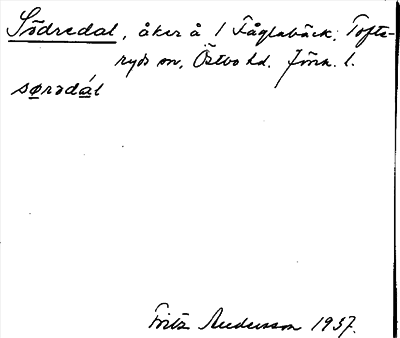 Södredal, åker å 1 Fåglabäck, Tofta-
ryds sn, Östbo hd. Jönk. l.
sørədál
Fritz Andersson 1937.